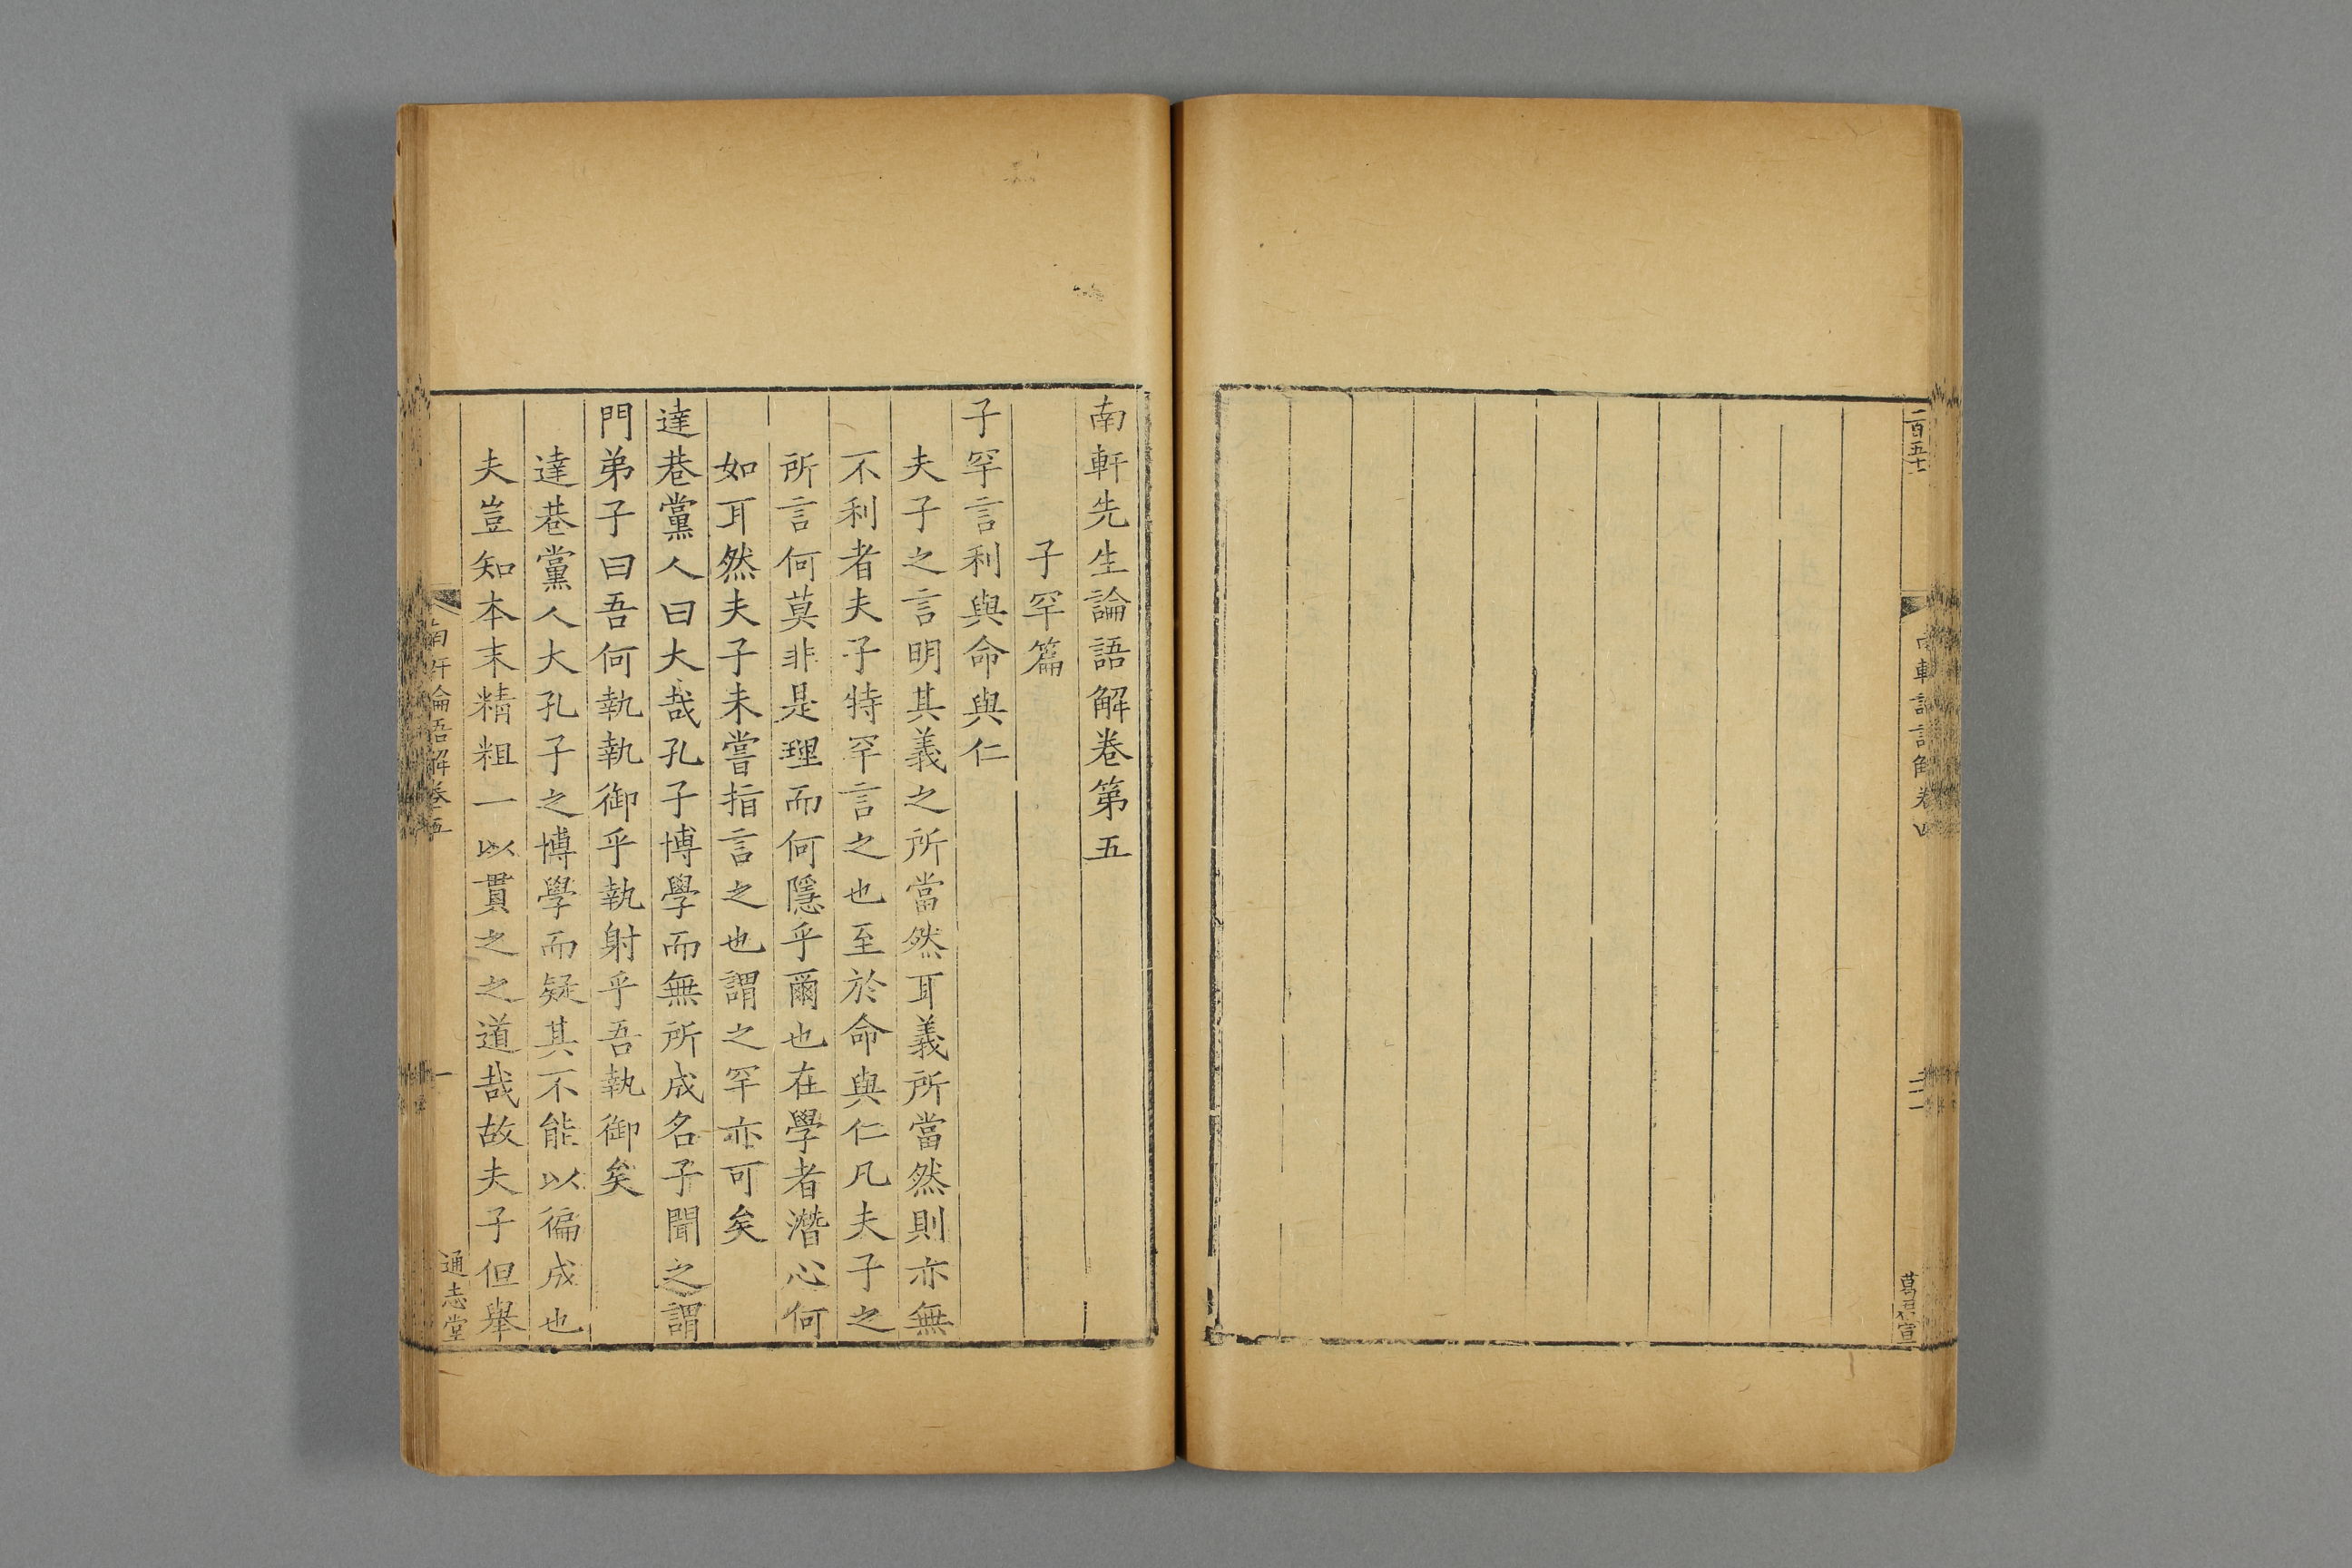 二百五十一
南軒論語解卷四
二十一
葛君宣
南軒先生論語解卷第五
子罕篇
子罕言利與命與仁
夫子之言明其義之所當然耳義所當然則亦無
不利者夫子特罕言之也至於命與仁凡夫子之
所言何莫非是理而何隱乎爾也在學者潛心何
如耳然夫子未嘗指言之也謂之罕亦可矣
達巷黨人曰大哉孔子博學而無所成名子聞之謂
門弟子曰吾何執執御乎執射乎吾執御矣
達巷黨人大孔子之博學而疑其不能以徧成也
夫豈知本末精粗一以貫之之道哉故夫子但舉
南軒論語解卷五
一
通志堂